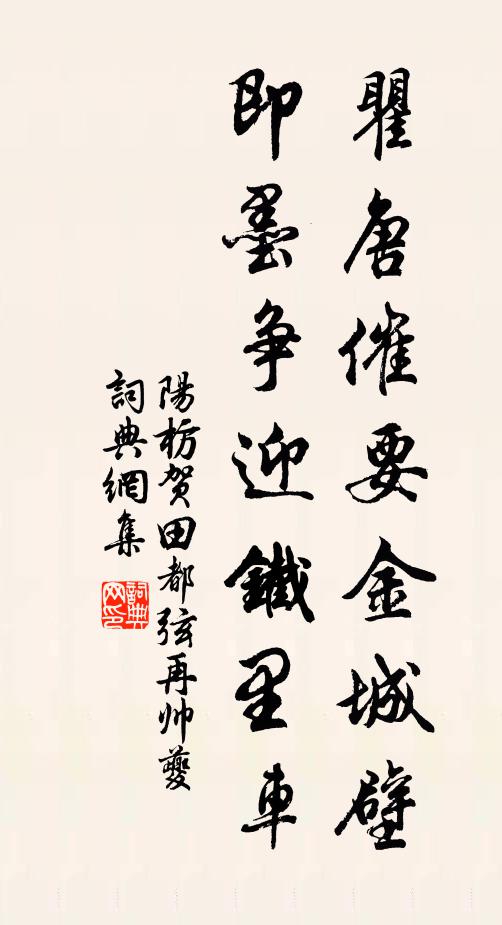 瞿唐催要金城壁
即墨爭迎鐵里車
陽枋賀田都弦再帅夔
詞典網集
詞典
网印